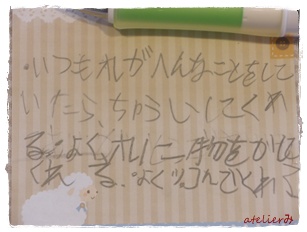 ・いつもオレがへんなことをして
いたら、ちゅういしてくれ
る。・よくオレに物をかして
くれる。・よくツッコんでくれる
atelierみ